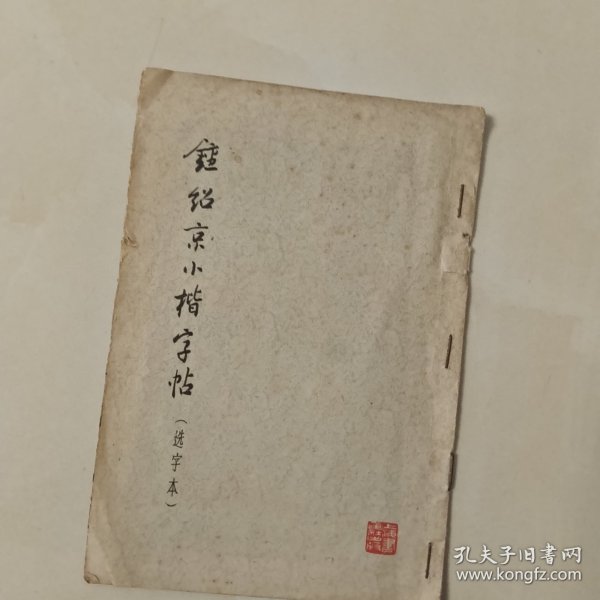 鍾绍京小楷字帖
（选字本）
孔夫子旧书网
www.kongfz.com